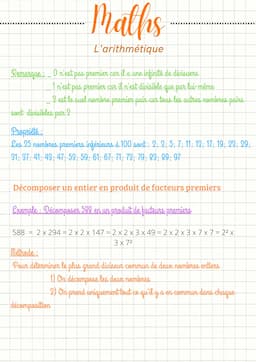 Maths
L'arithmétique
Remarque : _ 0 n'est pas premier car il a une infinité de diviseurs
_ 1 n'est pas premier car il n'est divisible que par lui-même
_ 2 est le seul nombre premier pair car tous les autres nombres pairs
sont divisibles par 2
Propriété :
Les 25 nombres premiers inférieurs à 100 sont : 2; 3; 5; 7; 11; 13; 17; 19; 23; 29;
31; 37; 41; 43; 47; 53; 59; 61; 67; 71; 73; 79; 83; 89; 97
Décomposer un entier en produit de facteurs premiers
Exemple : Décomposer 588 en un produit de facteurs premiers
588 = 2 x 294 = 2 x 2 x 147 = 2 x 2 x 3 x 49 = 2 x 2 x 3 x 7 x 7 = 2² x
3 x 7²
Méthode :
Pour déterminer le plus grand diviseur commun de deux nombres entiers
1) On décompose les deux nombres
2) On prend uniquement tout ce qu'il y a en commun dans chaque
décomposition